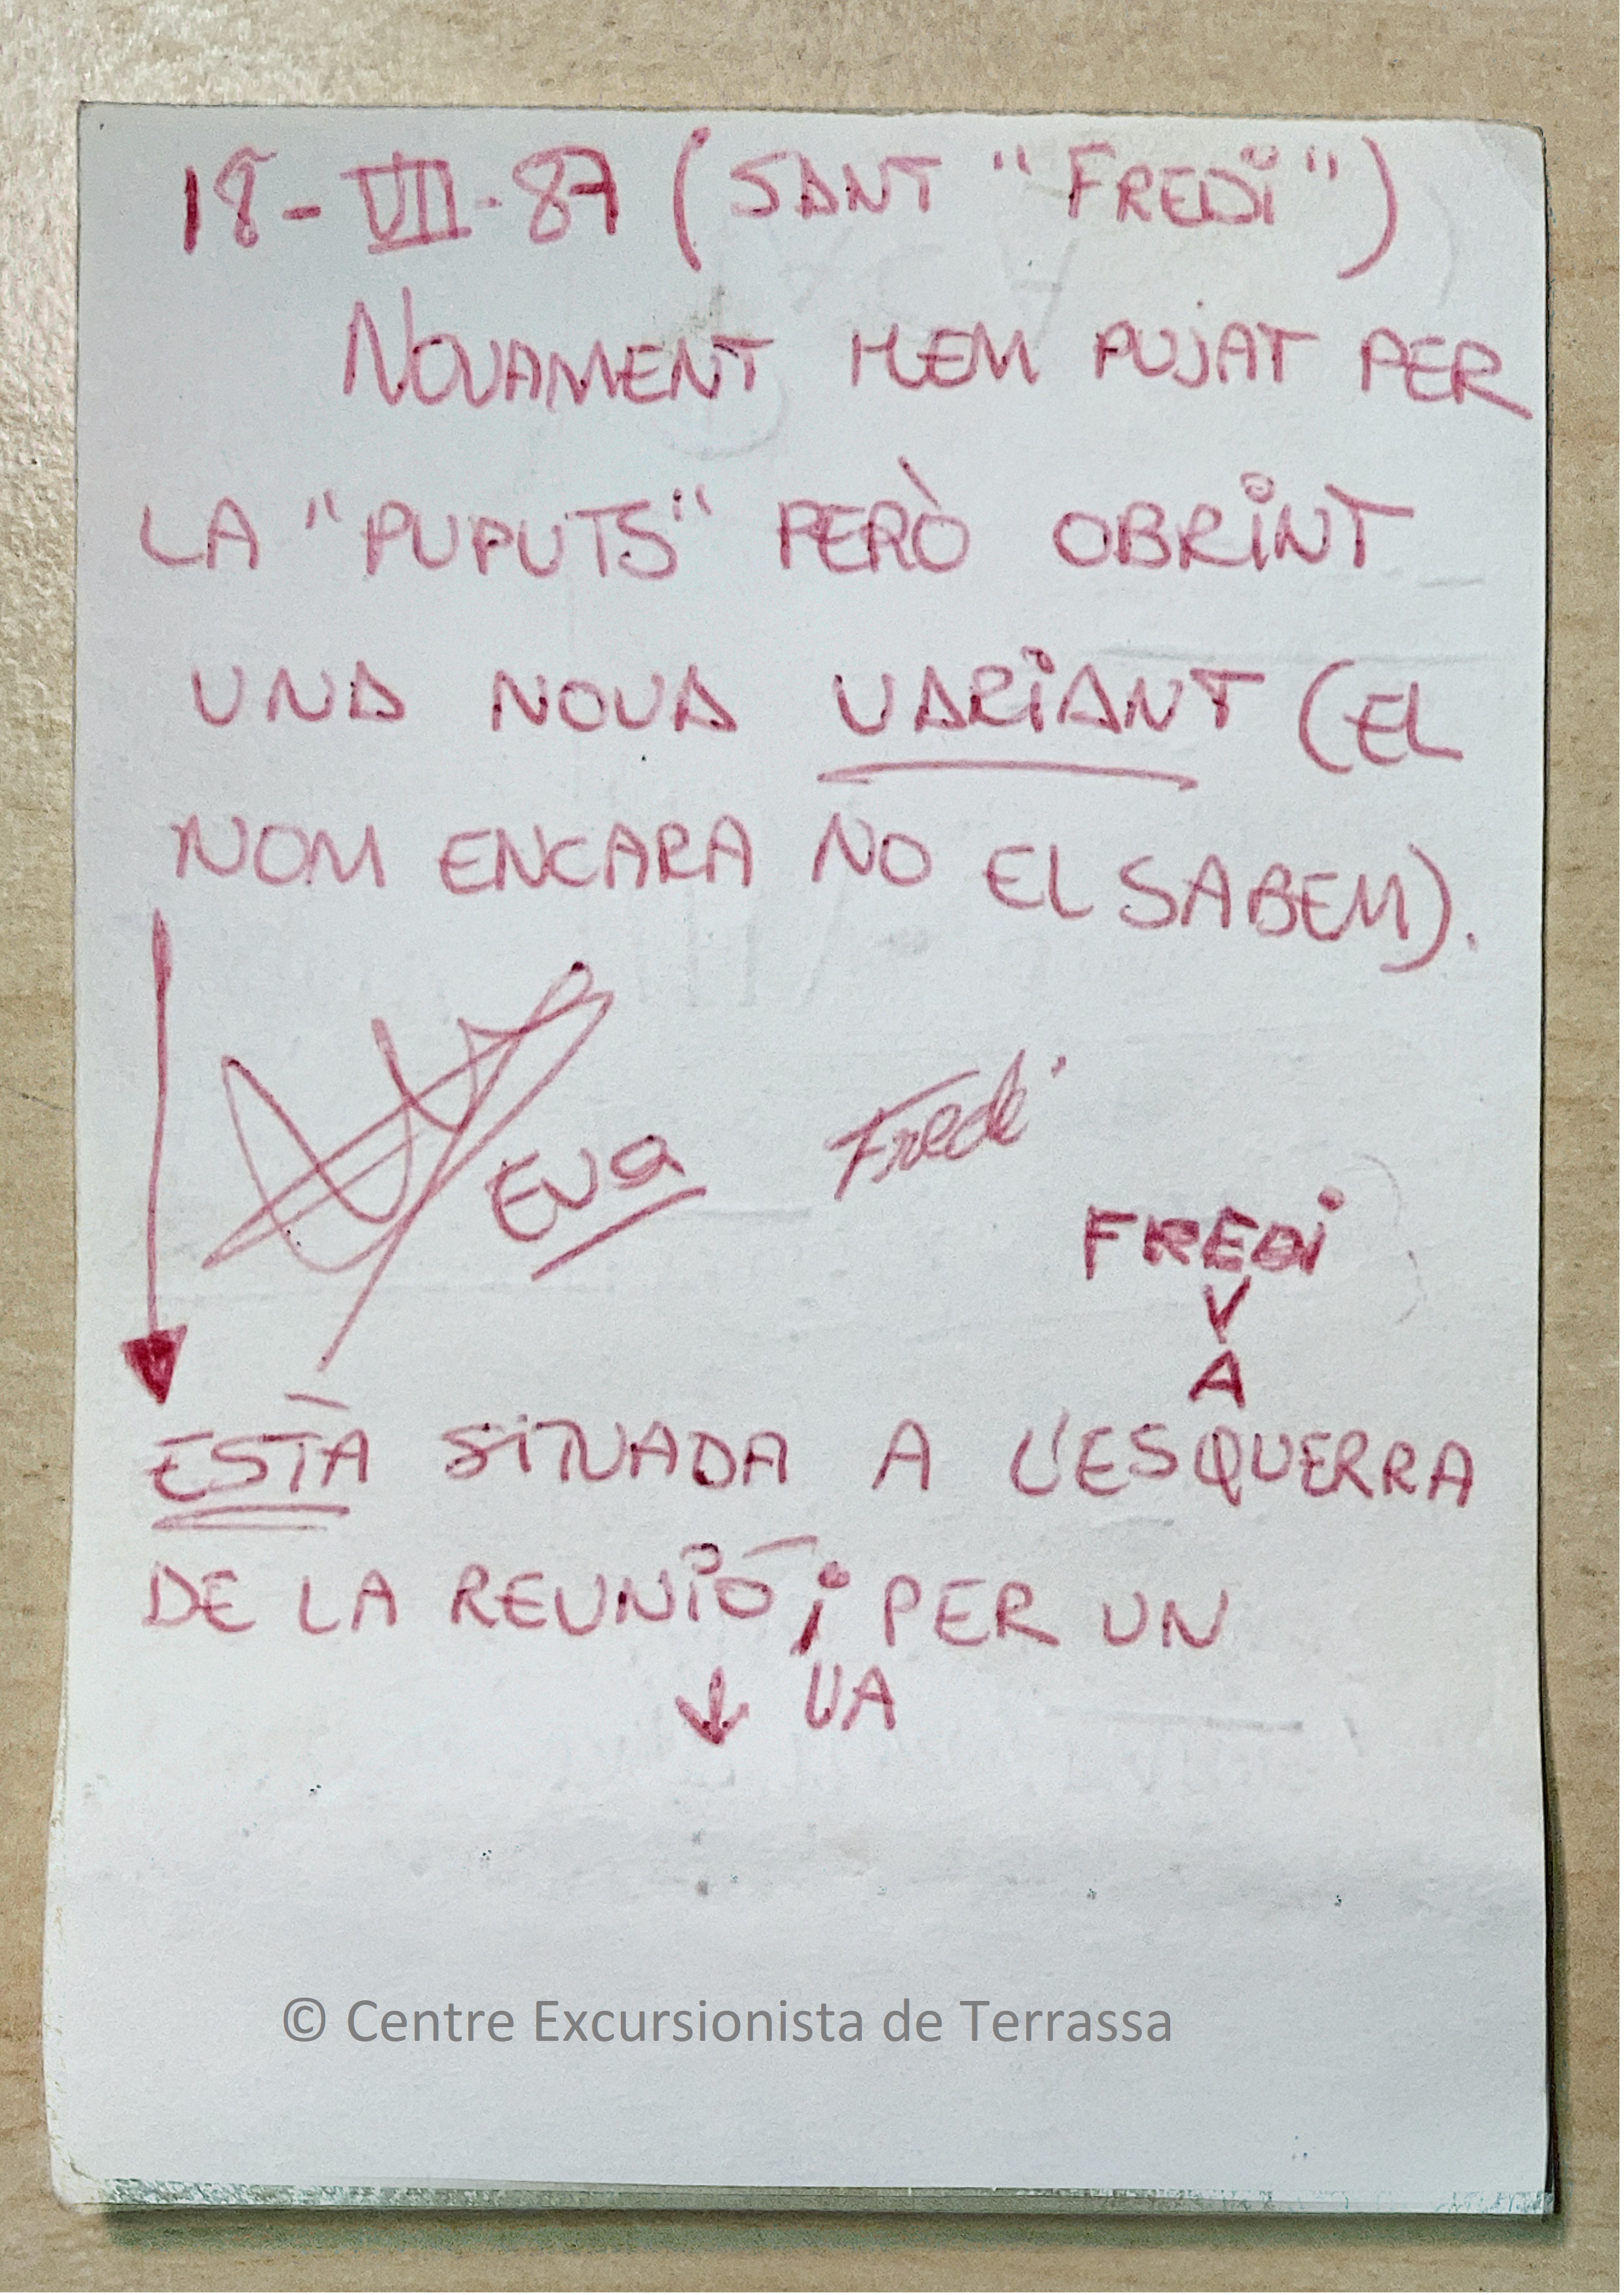 18-VII-87 (SANT "FREDi")
NOVAMENT HEM PUJAT PER
LA "PUPUTS" PERÒ OBRiNT
UNA NOVA VARiANT (EL
NOM ENCARA NO EL SABEM).
Eva Fredi
FREDi
V
A
ESTÀ SiTUADA A L'ESQUERRA
DE LA REUNiÓ i PER UN
↓ VA
© Centre Excursionista de Terrassa